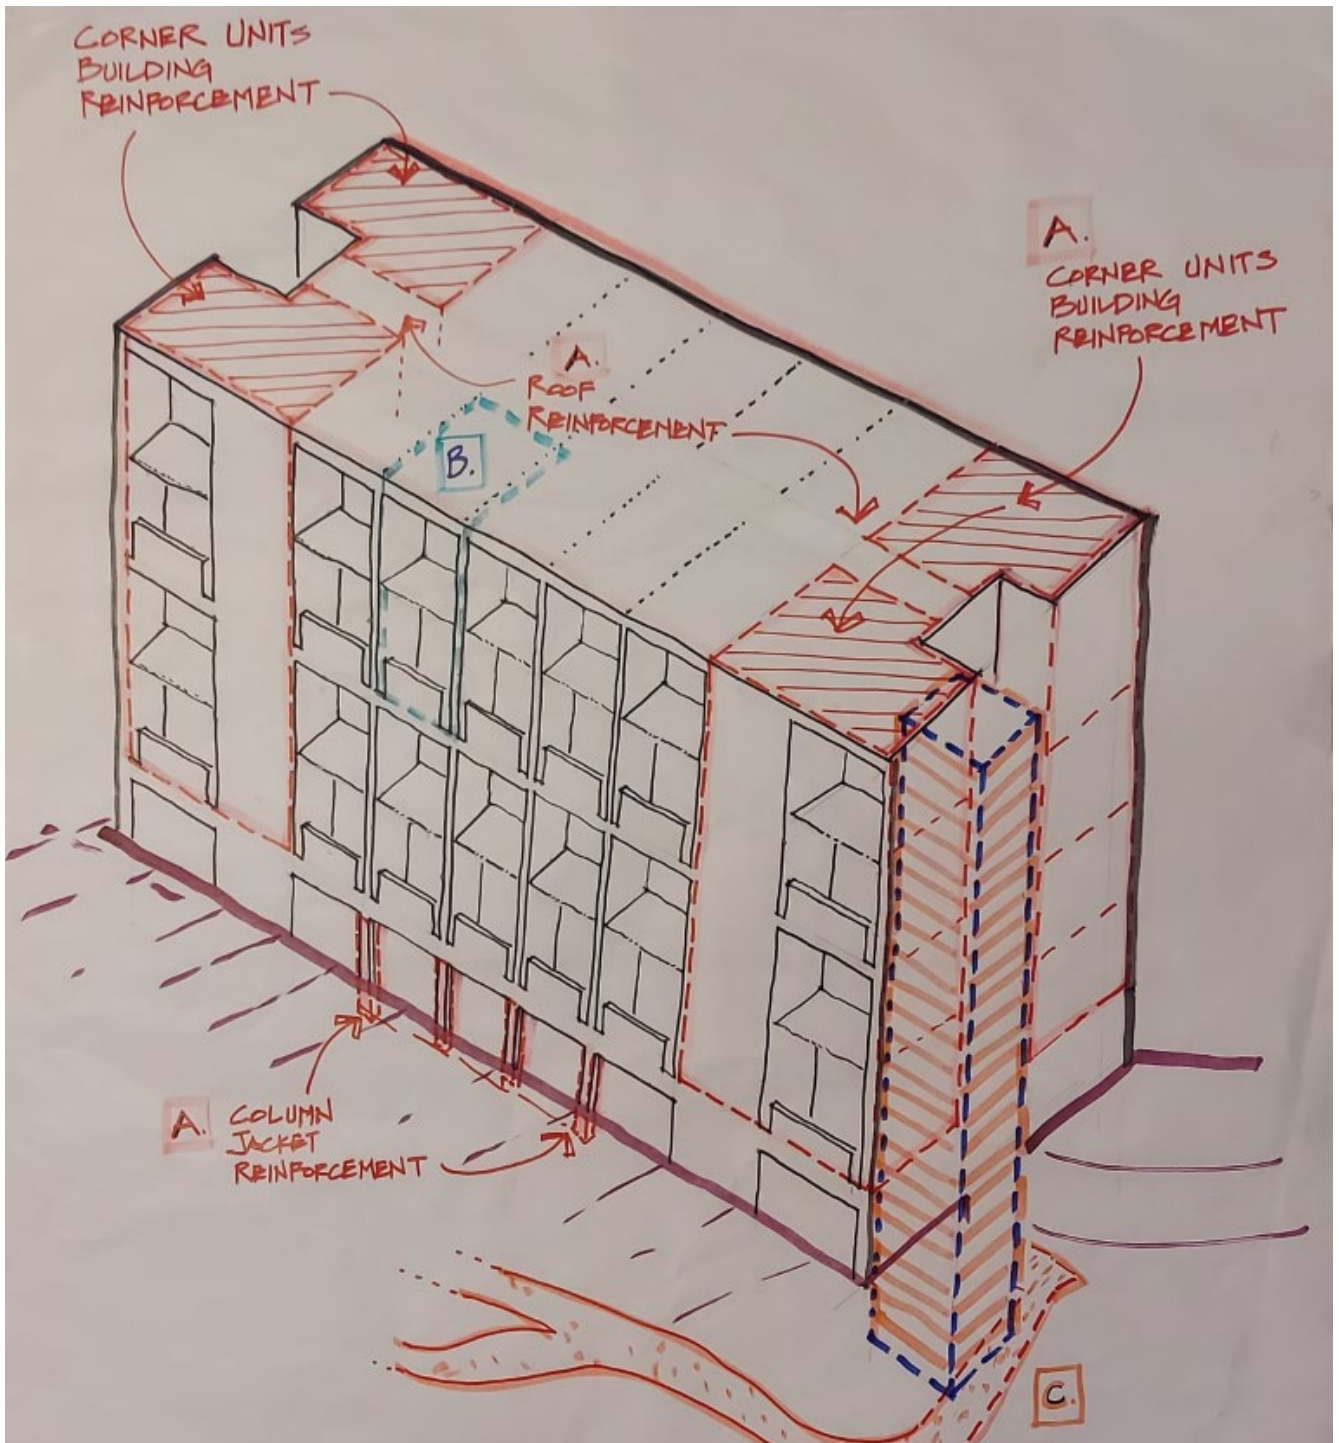 CORNER UNITS
BUILDING
REINFORCEMENT
A.
CORNER UNITS
BUILDING
REINFORCEMENT
A.
ROOF
REINFORCEMENT
B.
A. COLUMN
JACKET
REINFORCEMENT
C.